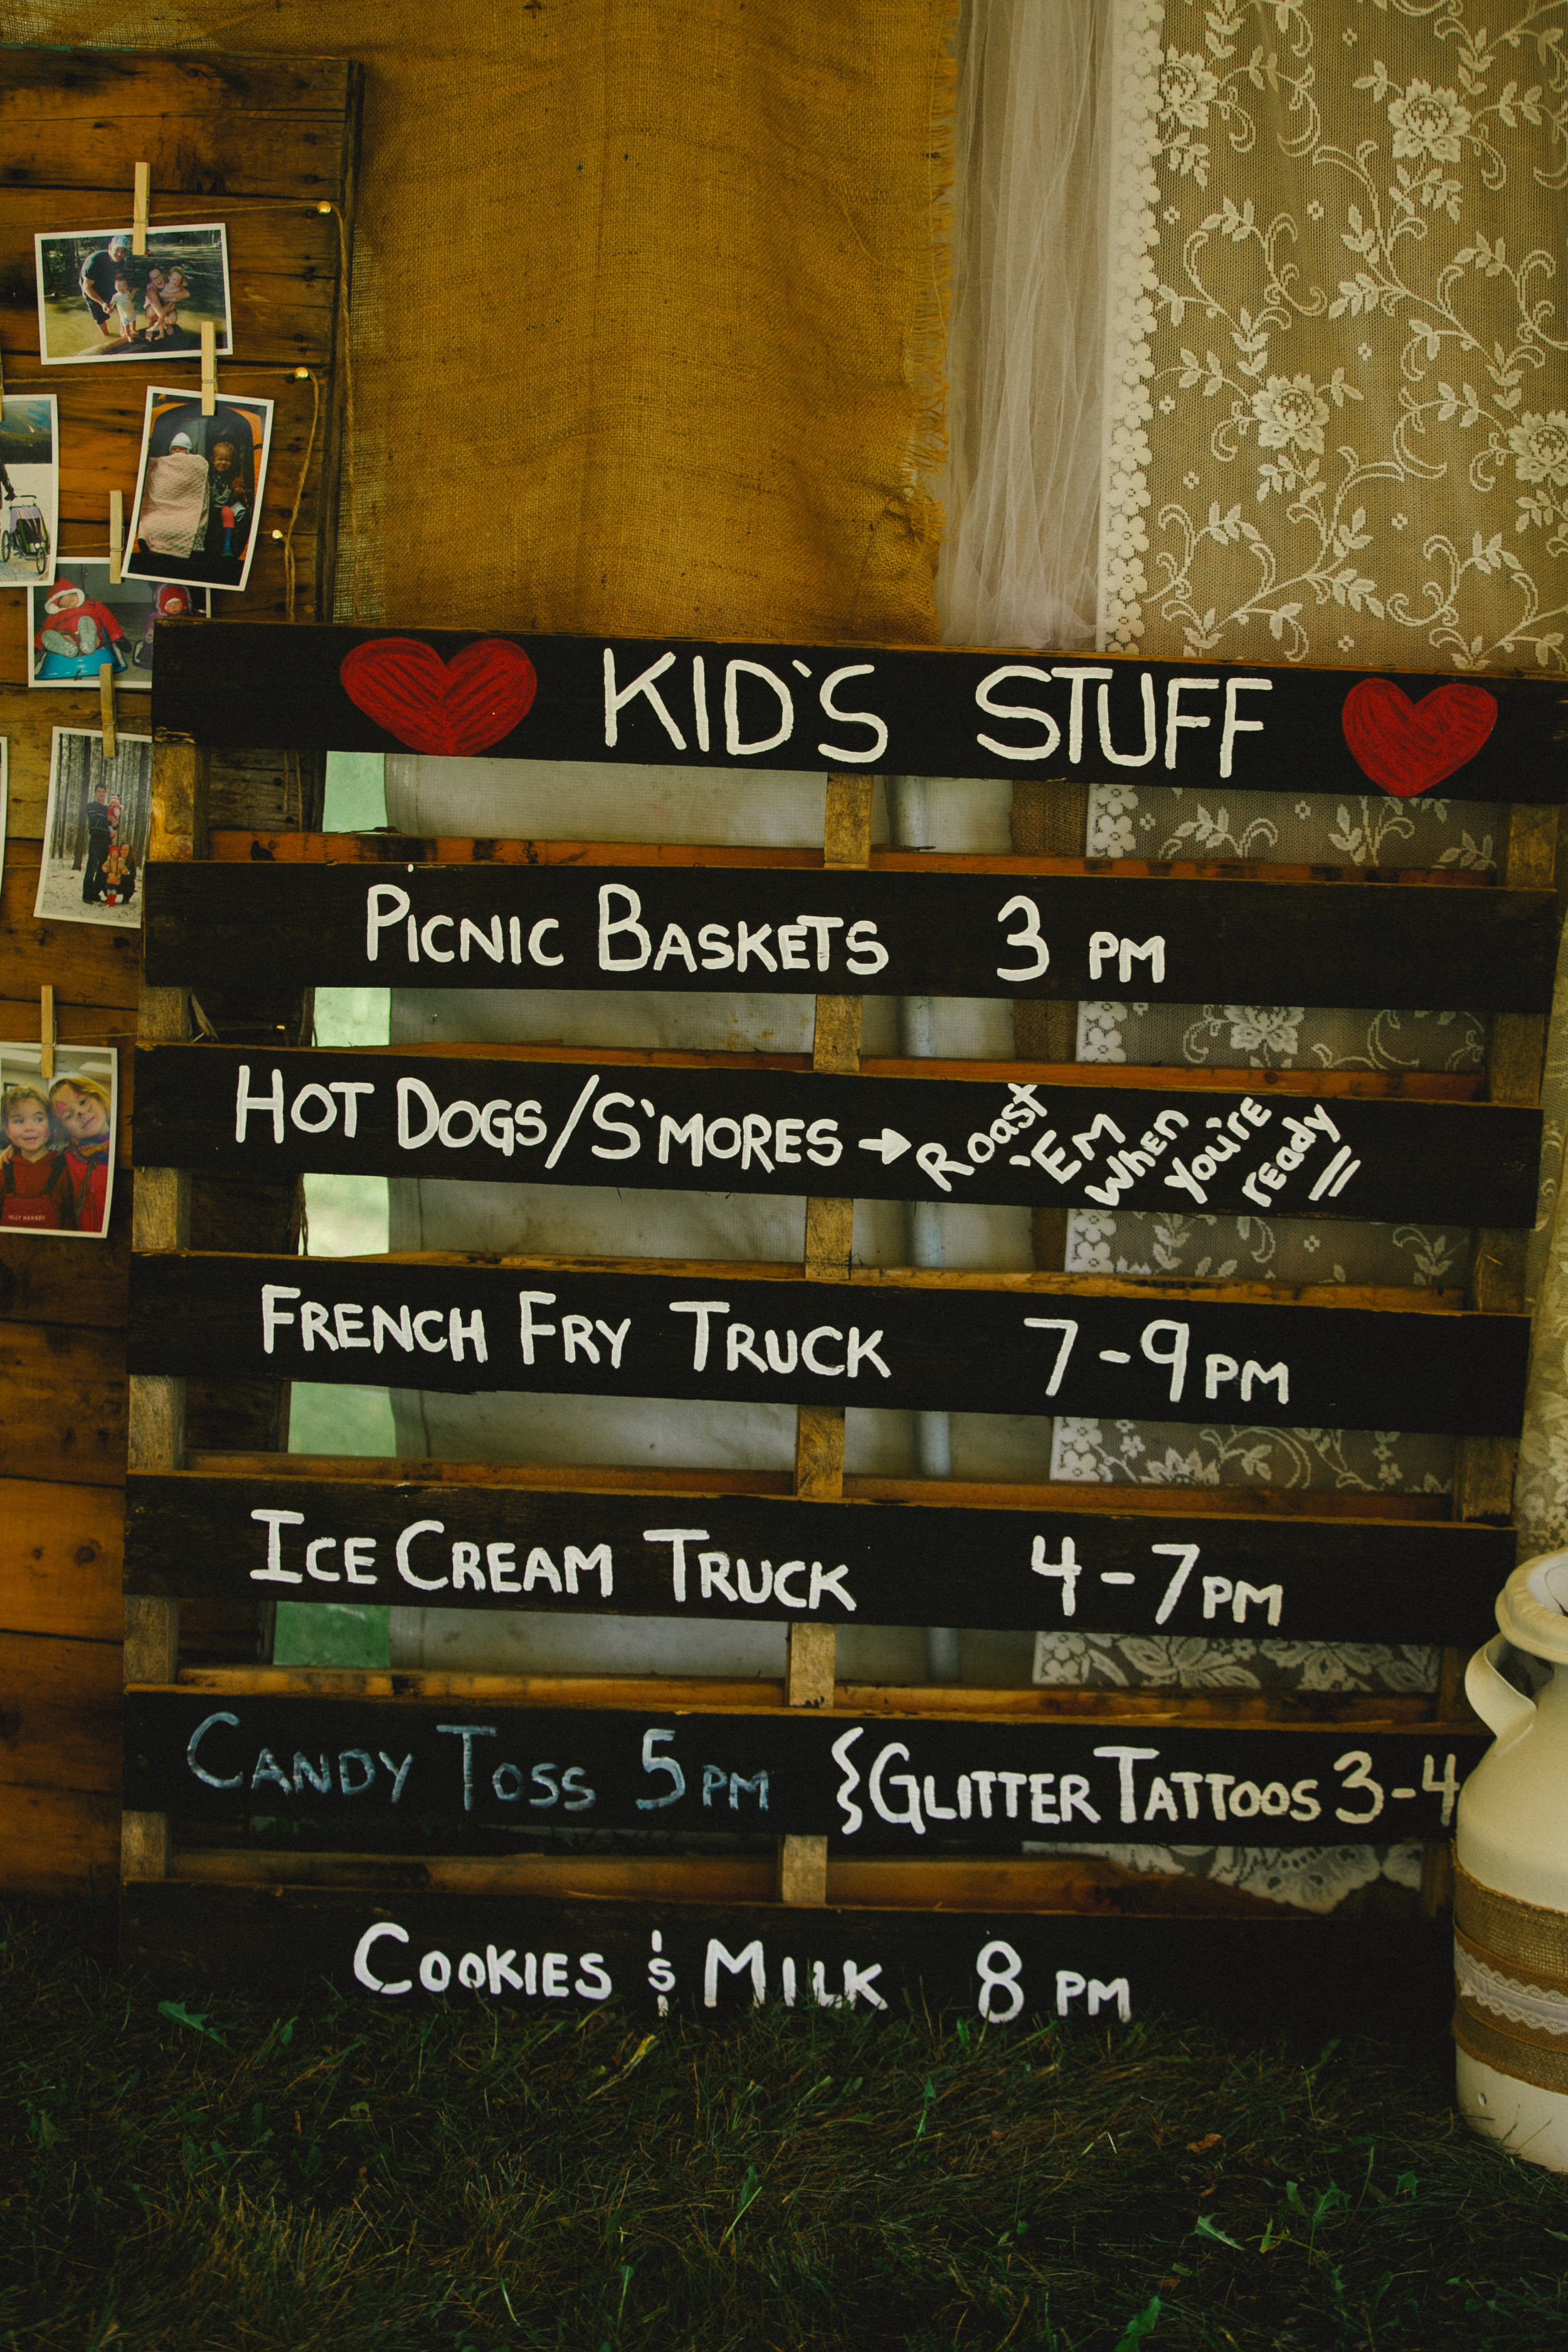 KID'S STUFF
PICNIC BASKETS 3 PM
HOT DOGS/S'MORES → Roast 'EM When You're ready!!
FRENCH FRY TRUCK 7-9PM
ICE CREAM TRUCK 4-7PM
CANDY TOSS 5PM { GLITTER TATTOOS 3-4
COOKIES & MILK 8 PM